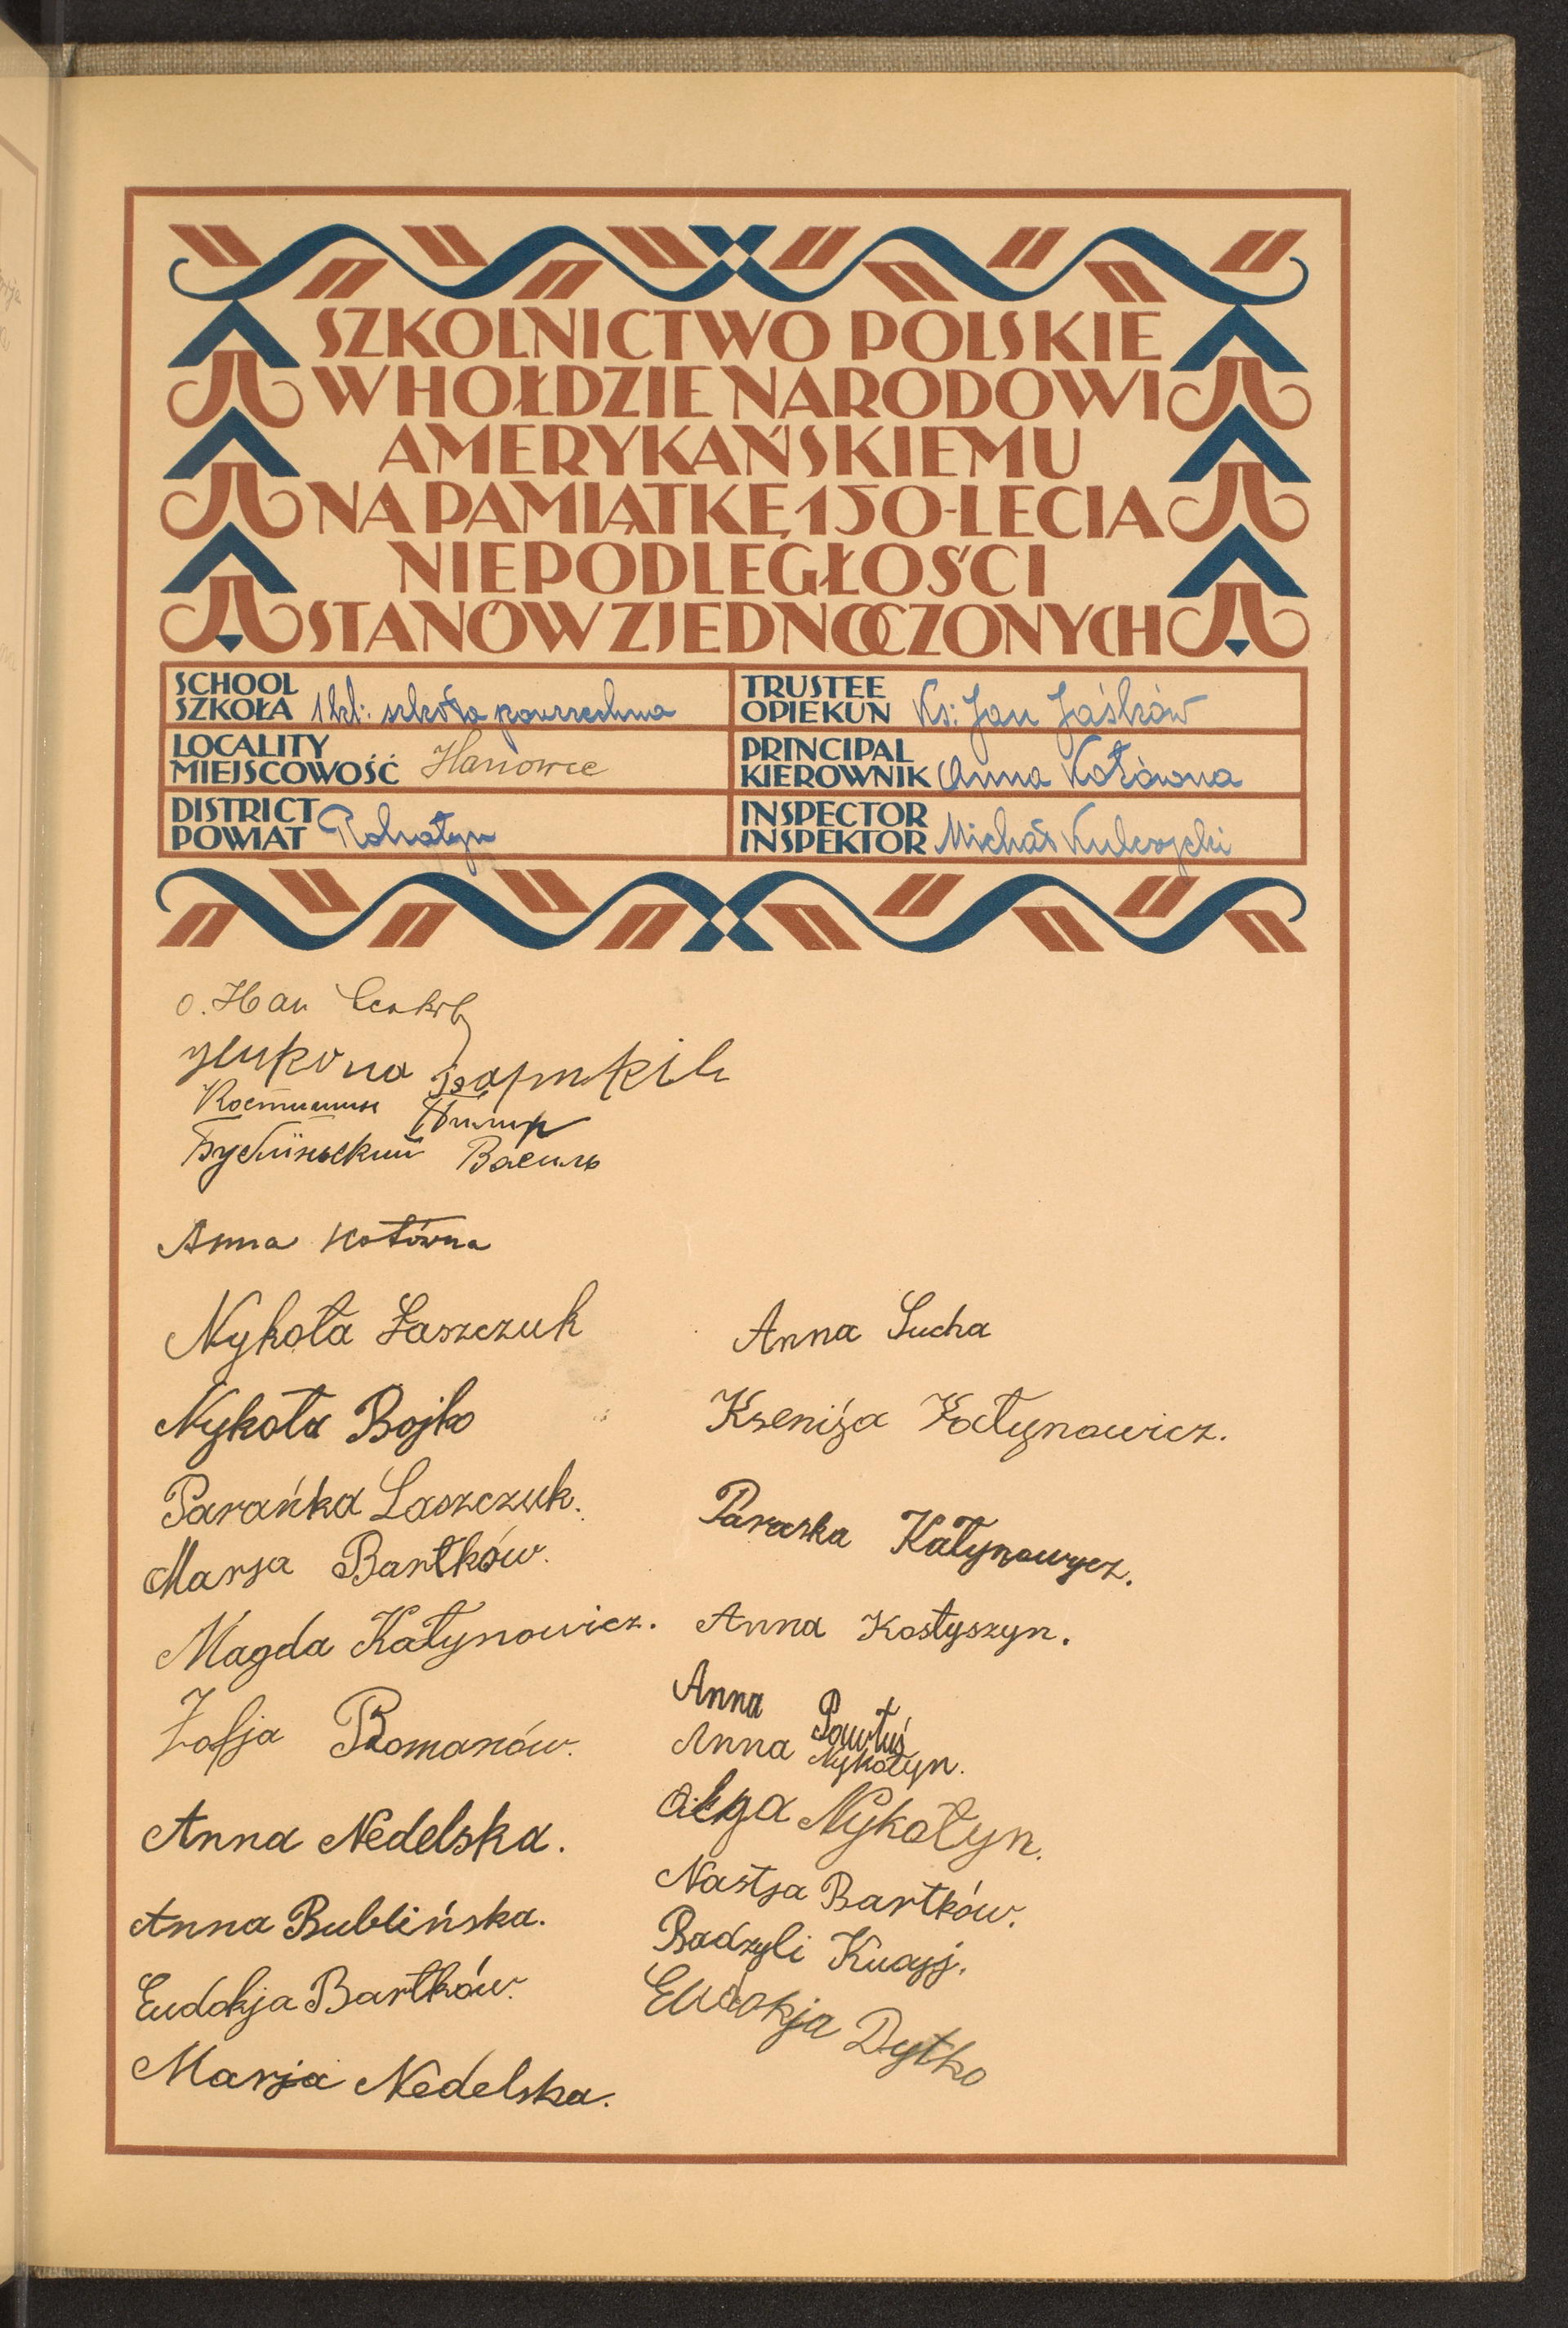 SZKOLNICTWO POLSKIE
W HOŁDZIE NARODOWI
AMERYKAŃSKIEMU
NA PAMIĄTKĘ 150-LECIA
NIEPODLEGŁOŚCI
STANÓW ZJEDNOCZONYCH
SCHOOL
SZKOŁA 1 kl: szkoła powszechna
TRUSTEE
OPIEKUN Ks: Jan Jaśków
LOCALITY
MIEJSCOWOŚĆ Hanowce
PRINCIPAL
KIEROWNIK Anna Kotówna
DISTRICT
POWIAT Rohatyn
INSPECTOR
INSPEKTOR Michał Kulczycki
о. Иван
Бартків
Бублїньский Василь
Anna Kotówna
Nykoła Łaszczuk
Nykoła Bojko
Parańka Laszczuk.
Marja Bartków.
Magda Kałynowicz.
Zofja Romanów.
Anna Nedelska.
Anna Bublińska.
Eudokja Bartków.
Marja Nedelska.
Anna Sucha
Ksenija Kałynowicz.
Paraska Kałynowycz.
Anna Kostyszyn.
Anna Pawłuś
Anna Nykołyn.
Olga Nykołyn.
Nastja Bartków.
Eudokja Dytko